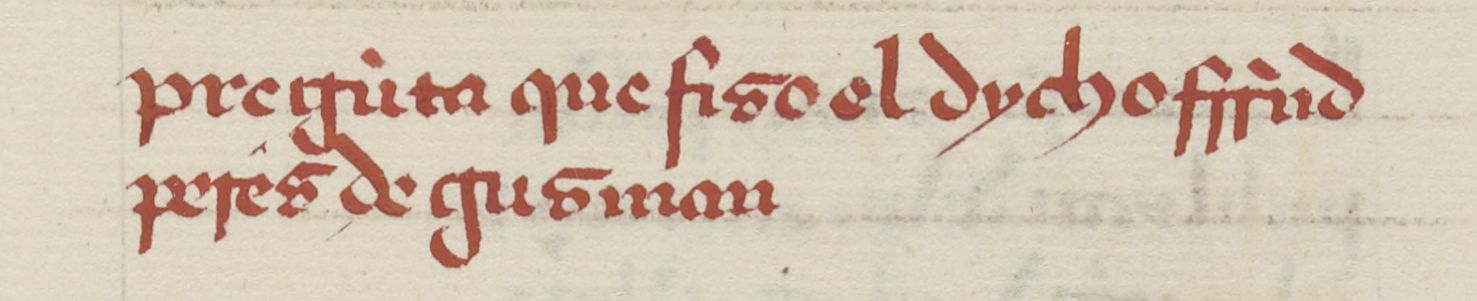 pregũta que fiso el dycho ffrrãd
peres de gusman